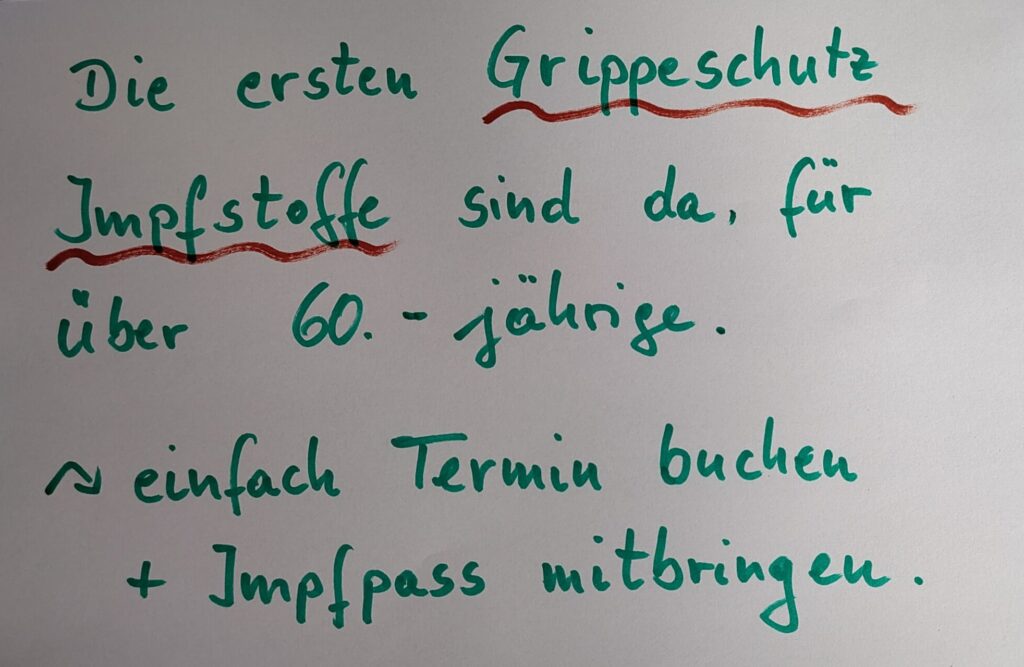 Die ersten Grippeschutz
Impfstoffe sind da, für
über 60.-jährige.
↝ einfach Termin buchen
+ Impfpass mitbringen.